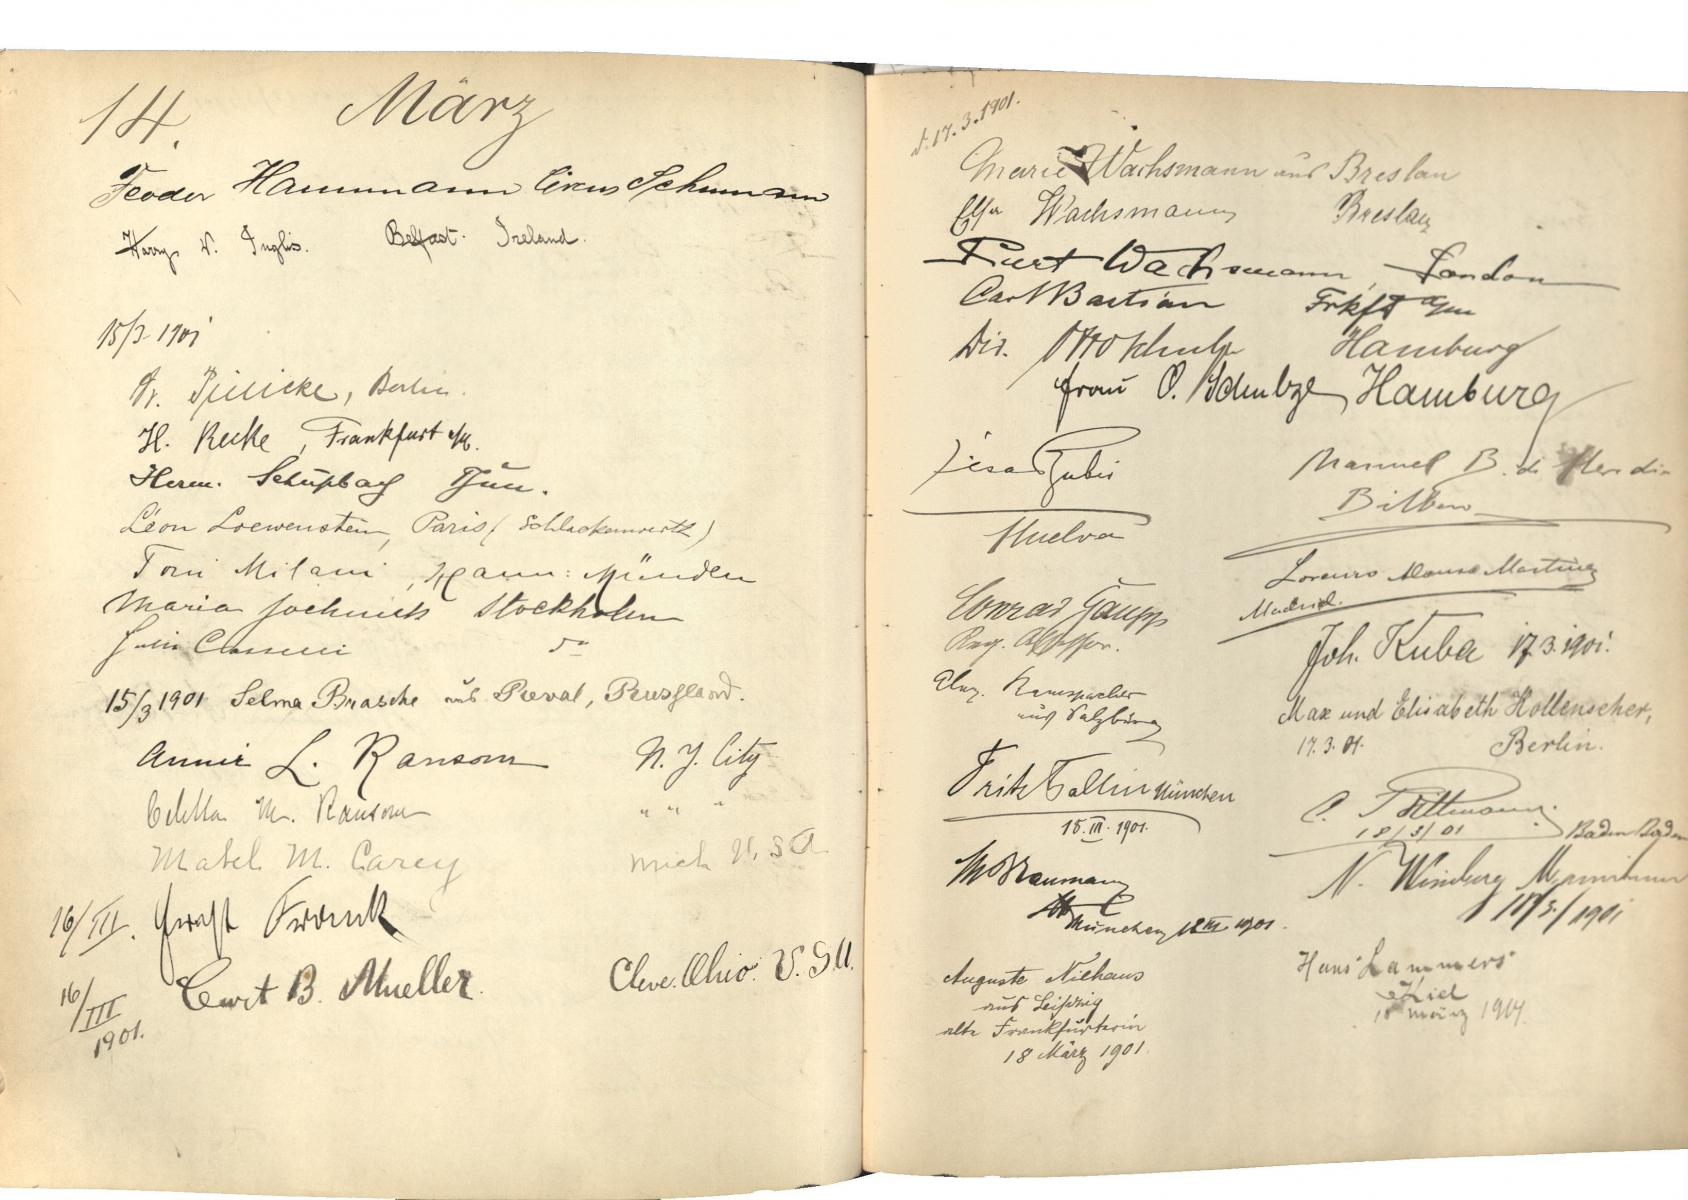 14. März
Feodor Hammann Circus Schumann
Harry V. Inglis. Belfast. Ireland.
15/3 1901
Berlin.
H. Recke, Frankfurt a/M.
Herm. Schüpbach Thun.
Léon Loewenstein, Paris (Schlackenwerth)
Toni Milani, Hann: Münden
Maria Jochnick Stockholm
do
15/3 1901 Selma Brasche aus Reval, Russland.
Annie L. Ransom N. Y. City
M. Ransom " " "
Mabel M. Carey Mich U.S.A
16/III. Ernst Franck
16/III 1901. Curt B. Mueller. Cleve. Ohio. U.S.A.
d. 17.3.1901.
Marie Wachsmann aus Breslau
Elsa Wachsmann Breslau
Kurt Wachsmann, London
Carl Bastian Frkft a/m
Dir. Otto Schulze Hamburg
Frau O. Schulze, Hamburg
Huelva
Manuel B. de Heredia
Bilbao
Conrad Gaupp
Reg. Assessor.
Lorenzo Alonso Martinez
Madrid.
Joh. Kuba 17.3.1901.
aus Salzburg
Max und Elisabeth Hollenscher,
17.3.01. Berlin.
Fritz München
18.III.1901.
C. Pittmann.
18/3/01 Baden Baden
M. Naumann
München 18 III 1901.
N.
18/3/1901
Auguste Niehaus
aus Leipzig
alte Frankfurterin
18 März 1901.
Hans Lammers
Kiel
18 März 1901.